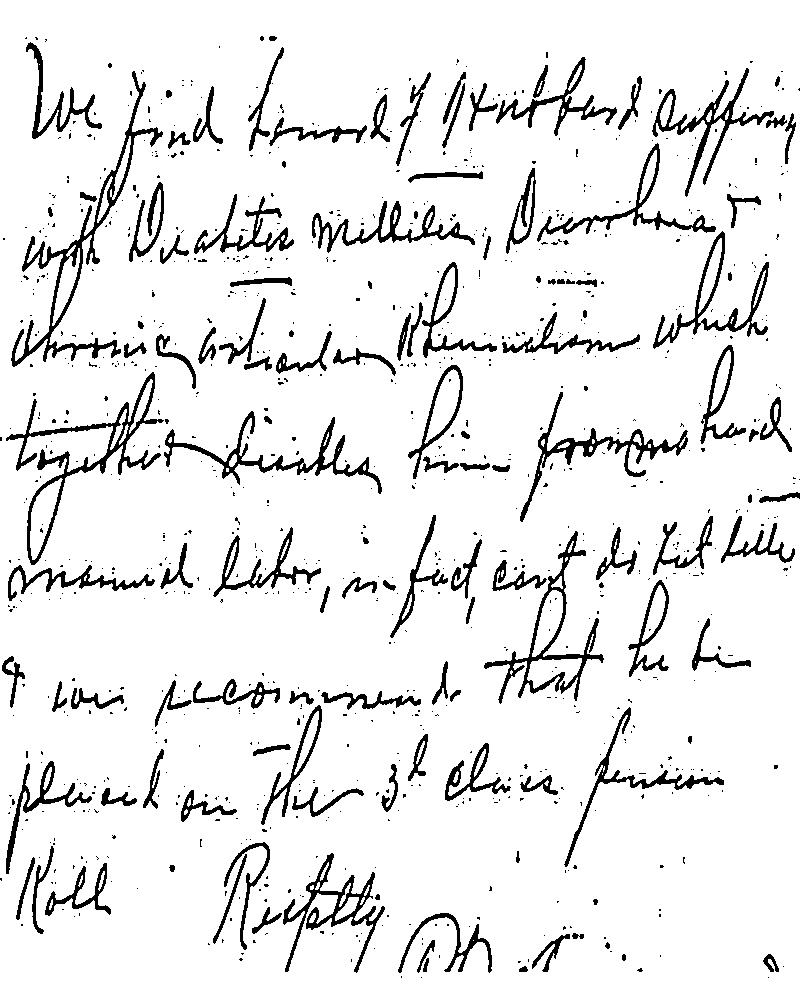 We find Lenord F Hubbard suffering
with Diabetes Mellites, Diarrhoea &
chronic articular Rheumatism which
together disables him from hard
manual labor, in fact, cant do but little
& we recommend that he be
placed on the 3d class pension
Roll Rectflly